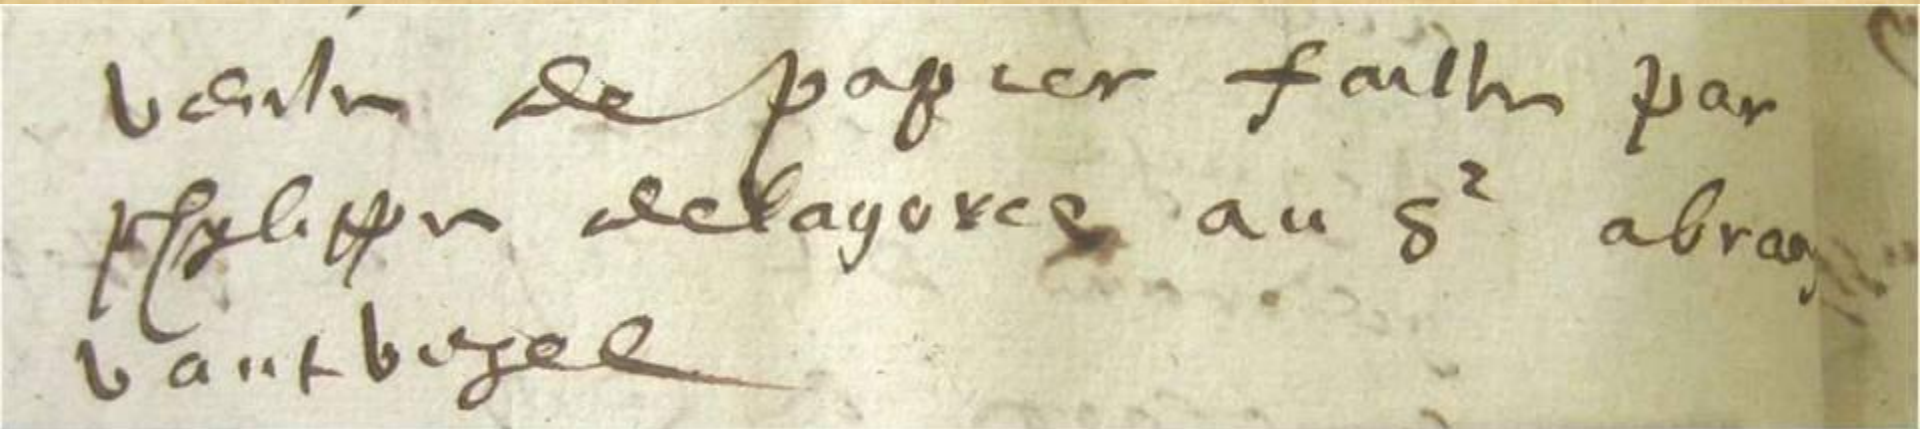 vente de papier faitte par
phylippe delagorce au sr abra
vantvezel